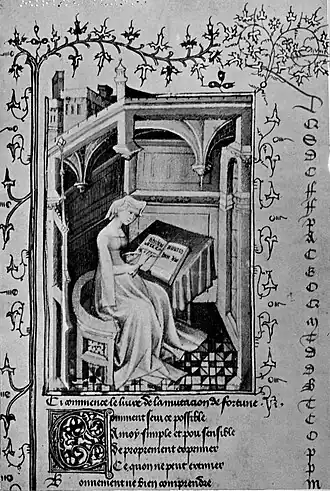 Ci commence le livre de la mutacion de fortune
Comment sera ce possible
A moy simple et pou sensible
De proprement exprimer
Ce quon ne peut extimer
Bonnement ne bien comprendre